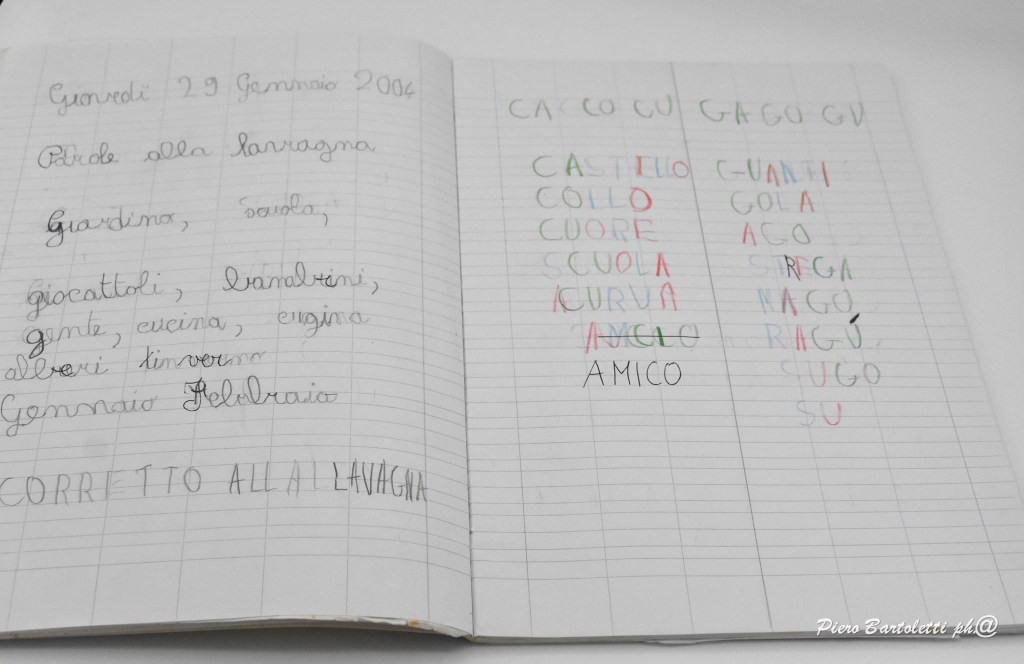 Giovedì 29 Gennaio 2004
Parole alla lavagna
Giardino, scuola,
giocattoli, bambini,
gente, cucina, cugina
alberi inverno
Gennaio Febbraio
CORRETTO ALLA LAVAGNA
CA CO CU GA GO GU
CASTELLO GUANTI
COLLO GOLA
CUORE AGO
SCUOLA STREGA
CURVA MAGO
AMICO RAGÚ
AMICO SUGO
SU
Piero Bartoletti ph@